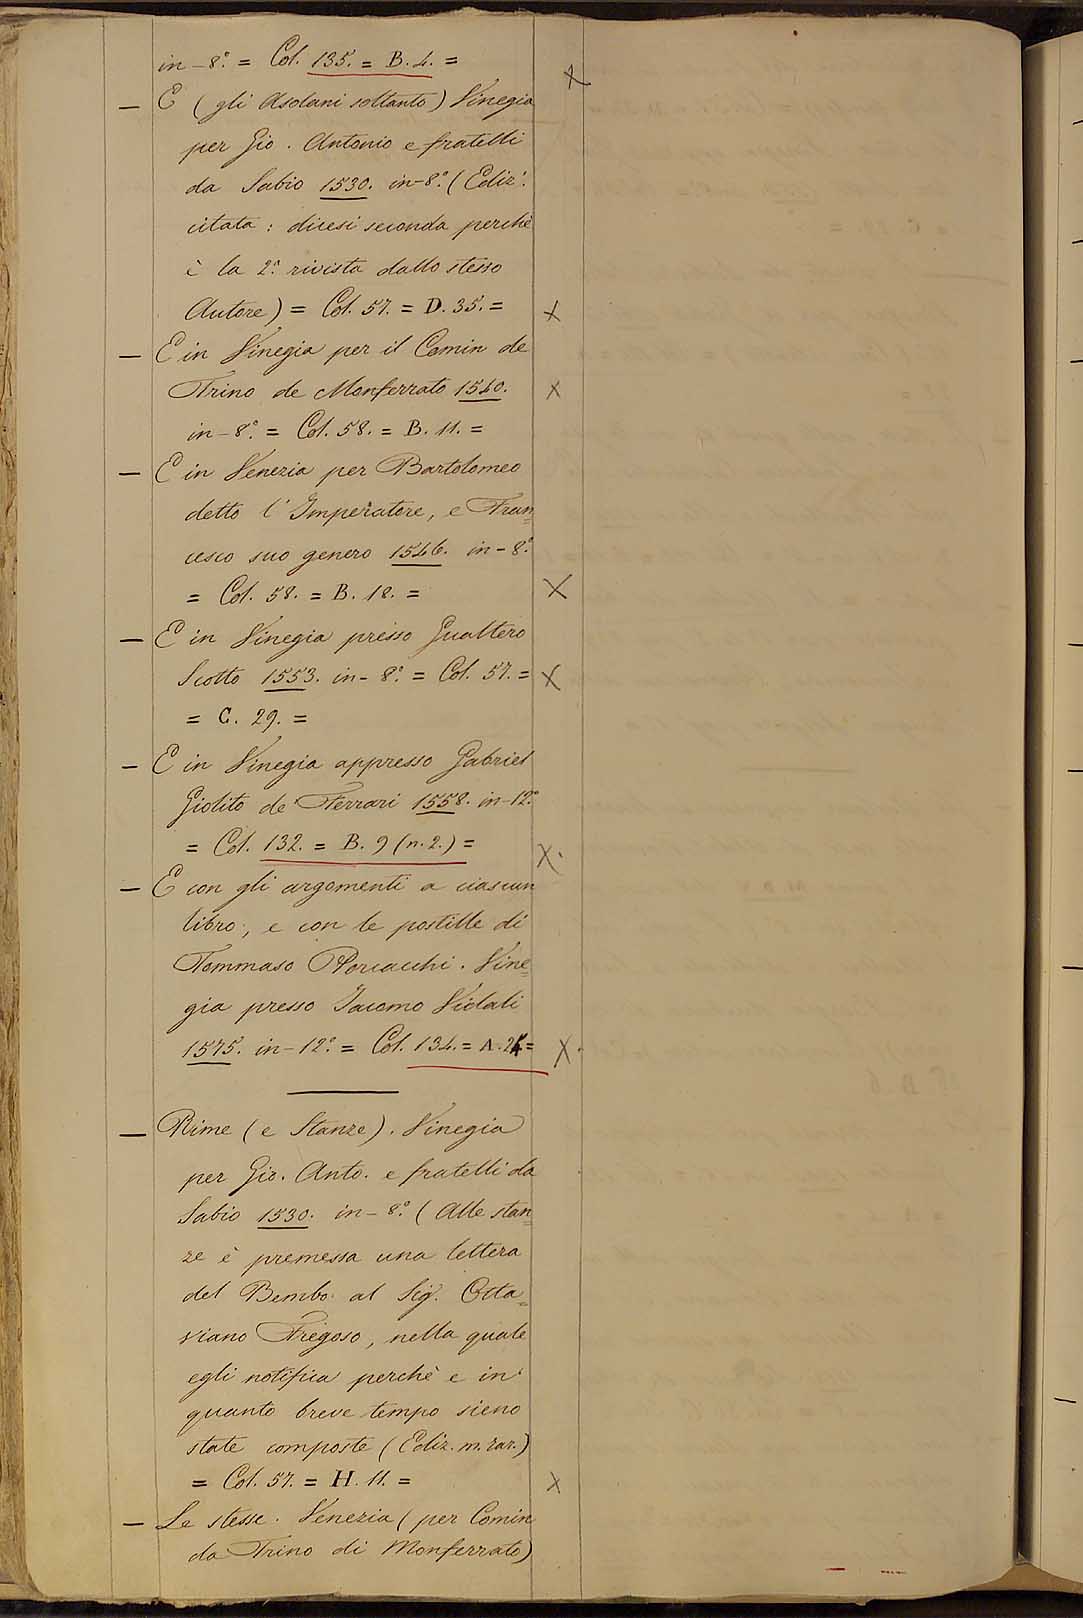 in-8.° = Col. 135. = B. 4. =
— E (gli Asolani soltanto) Vinegia
per Gio. Antonio e fratelli
da Sabio 1530. in-8.° (Ediz.
citata: dicesi seconda perchè
è la 2.ª rivista dallo stesso
Autore) = Col. 57. = D. 35. =
— E in Vinegia per il Comin de
Trino de Monferrato 1540.
in-8.° = Col. 58. = B. 11. =
— E in Venezia per Bartolomeo
detto l'Imperatore, e Fran=
cesco suo genero 1546. in-8.°
= Col. 58. = B. 18. =
— E in Vinegia presso Gualtero
Scotto 1553. in-8.° = Col. 57. =
= C. 29. =
— E in Vinegia appresso Gabriel
Giolito de' Ferrari 1558. in-12.°
= Col. 132. = B. 9 (n. 2.) =
— E con gli argomenti a ciascun
libro, e con le postille di
Tommaso Porcacchi. Vine=
gia presso Jacomo Vidali
1575. in-12.° = Col. 134. = A. 24 =
— Rime (e Stanze). Vinegia
per Gio. Anto. e fratelli da
Sabio 1530. in-8.° (Alle stan=
ze è premessa una lettera
del Bembo al Sig. Otta=
viano Fregoso, nella quale
egli notifica perchè e in
quanto breve tempo sieno
state composte (Ediz. m. rar.)
= Col. 57. = H. 11. =
— Le stesse. Venezia (per Comin
da Trino di Monferrato)